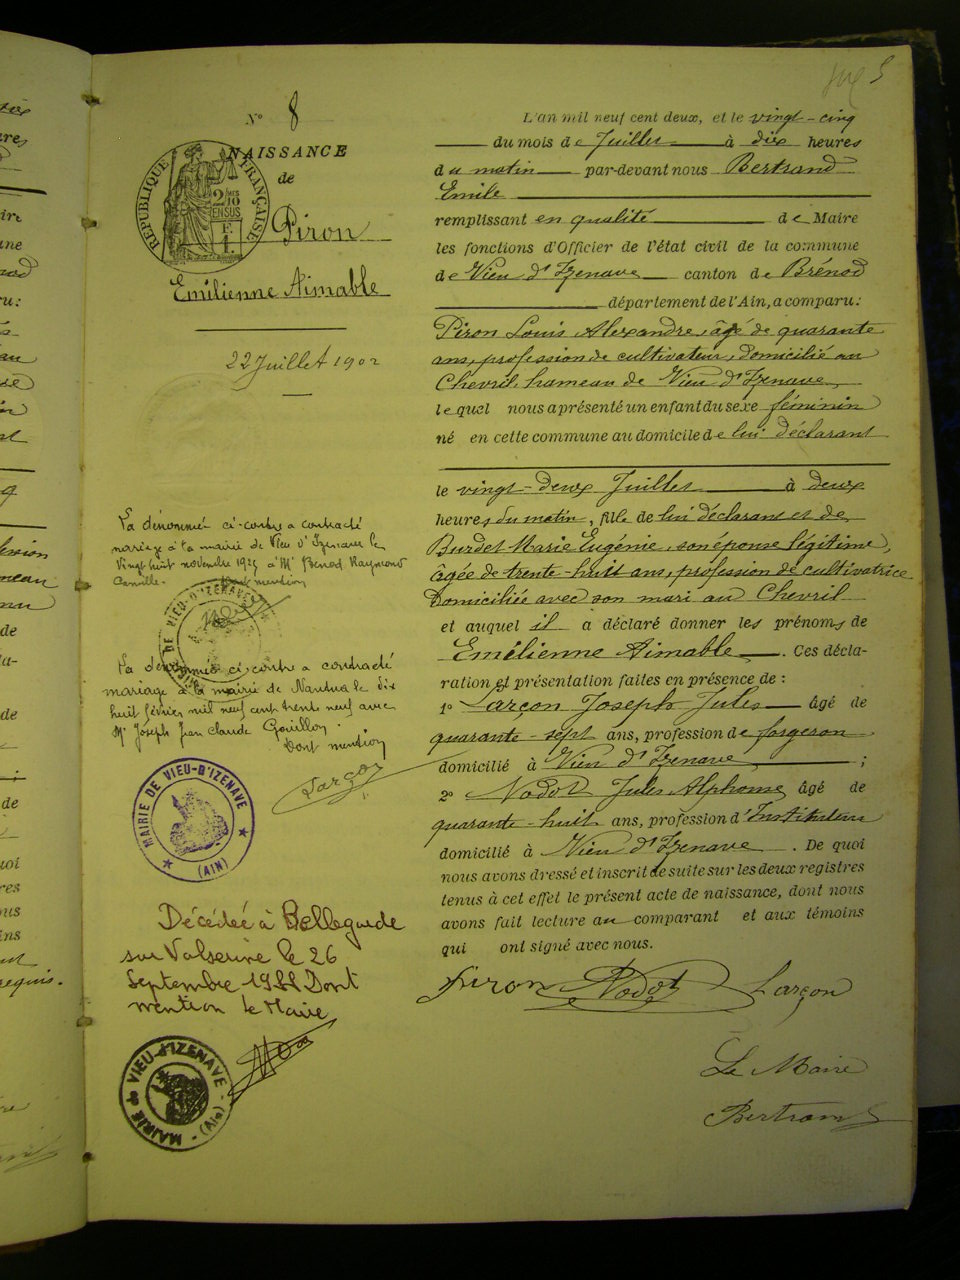 5
N° 8
NAISSANCE
de
Piron
Emilienne Aimable
RÉPUBLIQUE FRANÇAISE
2/10
EN SUS
22 Juillet 1902
La dénommée ci-contre a contracté
mariage à la mairie de Vieu d'Izenave le
Vingt huit novembre 1925 à Mr Benod Raymond
Camille. Dont mention
MAIRIE DE VIEU-D'IZENAVE
La dénommée ci-contre a contracté
mariage à la mairie de Nantua le dix
huit février mil neuf cent trente neuf avec
Mr Joseph Jean Claude Gouillon.
Dont mention
Larçon
MAIRIE DE VIEU-D'IZENAVE
(AIN)
Décédée à Bellegarde
sur Valserine le 26
Septembre 1981 Dont
mention le Maire
MAIRIE de VIEU-d'IZENAVE
(Ain)
L'an mil neuf cent deux, et le vingt-cinq
du mois de Juillet à dix heures
du matin par-devant nous Bertrand
Emile
remplissant en qualité de Maire
les fonctions d'Officier de l'état civil de la commune
de Vieu d'Izenave canton de Brénod
département de l'Ain, a comparu:
Piron Louis Alexandre, âgé de quarante
ans, profession de cultivateur, domicilié au
Chevril, hameau de Vieu d'Izenave,
lequel nous a présenté un enfant du sexe féminin
né en cette commune au domicile de lui déclarant
le vingt-deux Juillet à deux
heures du matin, fille de lui déclarant et de
Burdet Marie Eugénie, son épouse légitime,
âgée de trente-huit ans, profession de cultivatrice
domiciliée avec son mari au Chevril
et auquel il a déclaré donner les prénoms de
Emélienne Aimable. Ces décla-
ration et présentation faites en présence de :
1° Larçon Joseph Jules âgé de
quarante-sept ans, profession de forgeron
domicilié à Vieu d'Izenave ;
2° Nodot Jules Alphonse âgé de
quarante-huit ans, profession d'Instituteur
domicilié à Vieu d'Izenave. De quoi
nous avons dressé et inscrit de suite sur les deux registres
tenus à cet effet le présent acte de naissance, dont nous
avons fait lecture au comparant et aux témoins
qui ont signé avec nous.
Piron Nodot Larçon
Le Maire
Bertrand